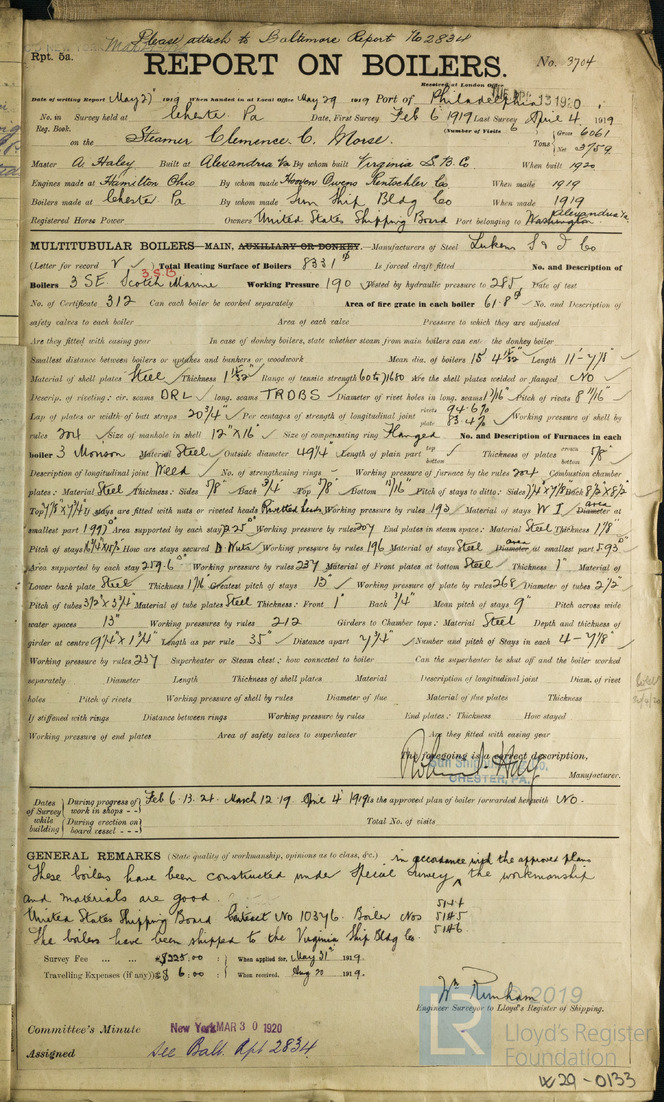 Please attach to Baltimore Report No 2834
Rpt. 5a.
REPORT ON BOILERS.
No. 3704
Received at London Office
Date of writing Report May 27 1919 When handed in at Local Office May 29 1919 Port of Philadelphia
No. in Survey held at Chester Pa Date, First Survey Feb 6 1919 Last Survey April 4 1919
Reg. Book. (Number of Visits 6
on the Steamer Clemence C. Morse. Tons Gross 6061 Net 3759
Master A. Haley Built at Alexandria Va By whom built Virginia S.B.Co When built 1920
Engines made at Hamilton Ohio By whom made Hooven Owens Rentschler Co. When made 1919
Boilers made at Chester Pa By whom made Sun Ship Bldg Co When made 1919
Registered Horse Power Owners United States Shipping Board Port belonging to Washington Alexandria Va
MULTITUBULAR BOILERS—MAIN, AUXILIARY OR DONKEY.—Manufacturers of Steel Lukens S & I Co
(Letter for record ) Total Heating Surface of Boilers 8331 Is forced draft fitted No. and Description of
Boilers 3 SE Scotch Marine 3 S.B. Working Pressure 190 Tested by hydraulic pressure to 285 Date of test
No. of Certificate 312 Can each boiler be worked separately Area of fire grate in each boiler 61.8 No. and Description of
safety valves to each boiler Area of each valve Pressure to which they are adjusted
Are they fitted with easing gear In case of donkey boilers, state whether steam from main boilers can enter the donkey boiler
Smallest distance between boilers or uptakes and bunkers or woodwork Mean dia. of boilers 15' 4 15/32" Length 11'-7/8"
Material of shell plates Steel Thickness 1 15/32" Range of tensile strength Are the shell plates welded or flanged No
Descrip. of riveting: cir. seams DRL long. seams TRDBS Diameter of rivet holes in long. seams 1 9/16" Pitch of rivets 8 11/16"
Lap of plates or width of butt straps 20 3/4" Per centages of strength of longitudinal joint rivets 94.6% plate 83.4% Working pressure of shell by
rules 204 Size of manhole in shell 12" x 16" Size of compensating ring Flanged No. and Description of Furnaces in each
boiler 3 Morison Material Steel Outside diameter 49 1/4" Length of plain part top bottom Thickness of plates crown bottom 5/8"
Description of longitudinal joint Weld No. of strengthening rings - Working pressure of furnace by the rules 204 Combustion chamber
plates: Material Steel Thickness: Sides 5/8" Back 3/4" Top 5/8" Bottom 11/16" Pitch of stays to ditto: Sides 7 3/4" x 7 7/8" Back 8 1/2 x 8 1/2"
Top 7 7/8 x 7 3/4 If stays are fitted with nuts or riveted heads Rivetted heads Working pressure by rules 193 Material of stays W I Diameter area at
smallest part 1.99 Area supported by each stay Working pressure by rules 207 End plates in steam space: Material Steel Thickness 1 1/8"
Pitch of stays How are stays secured D Nuts Working pressure by rules 196 Material of stays Steel Diameter area at smallest part 5.93
Area supported by each stay 259.6 Working pressure by rules 237 Material of Front plates at bottom Steel Thickness 1" Material of
Lower back plate Steel Thickness 1 1/16 Greatest pitch of stays 15" Working pressure of plate by rules 268 Diameter of tubes 2 1/2"
Pitch of tubes 3 1/2" x 3 3/4" Material of tube plates Steel Thickness: Front 1" Back 3/4" Mean pitch of stays 9" Pitch across wide
water spaces 13" Working pressures by rules 212 Girders to Chamber tops: Material Steel Depth and thickness of
girder at centre 9 3/4" x 1 3/4" Length as per rule 35" Distance apart 7 3/4" Number and pitch of Stays in each 4 - 7 7/8"
Working pressure by rules 237 Superheater or Steam chest; how connected to boiler Can the superheater be shut off and the boiler worked
separately Diameter Length Thickness of shell plates Material Description of longitudinal joint Diam. of rivet
holes Pitch of rivets Working pressure of shell by rules Diameter of flue Material of flue plates Thickness
If stiffened with rings Distance between rings Working pressure by rules End plates: Thickness How stayed
Working pressure of end plates Area of safety valves to superheater Are they fitted with easing gear
The foregoing is a correct description,
Sun Ship
CHESTER, PA.
Manufacturer.
Dates of Survey while building During progress of work in shops - - Feb 6. 13. 24. March 12. 19. April 4 1919 Is the approved plan of boiler forwarded herewith No.
During erection on board vessel - - - Total No. of visits
GENERAL REMARKS (State quality of workmanship, opinions as to class, &c.) in accordance with the approved plans
These boilers have been constructed under Special Survey ^ the workmanship
and materials are good.
United States Shipping Board Contract No 10376. Boiler Nos 5144 5145 5146
The boilers have been shipped to the Virginia Ship Bldg Co.
Survey Fee ... ... $225.00 : When applied for, May 31st 1919.
Travelling Expenses (if any) $ 6.00 : When received, Aug 20 1919.
Wm Runham
Engineer Surveyor to Lloyd's Register of Shipping.
Committee's Minute New York MAR 30 1920
Assigned See Balt. Rpt 2834
© 2019
LR
Lloyd's Register
Foundation
W29-0133